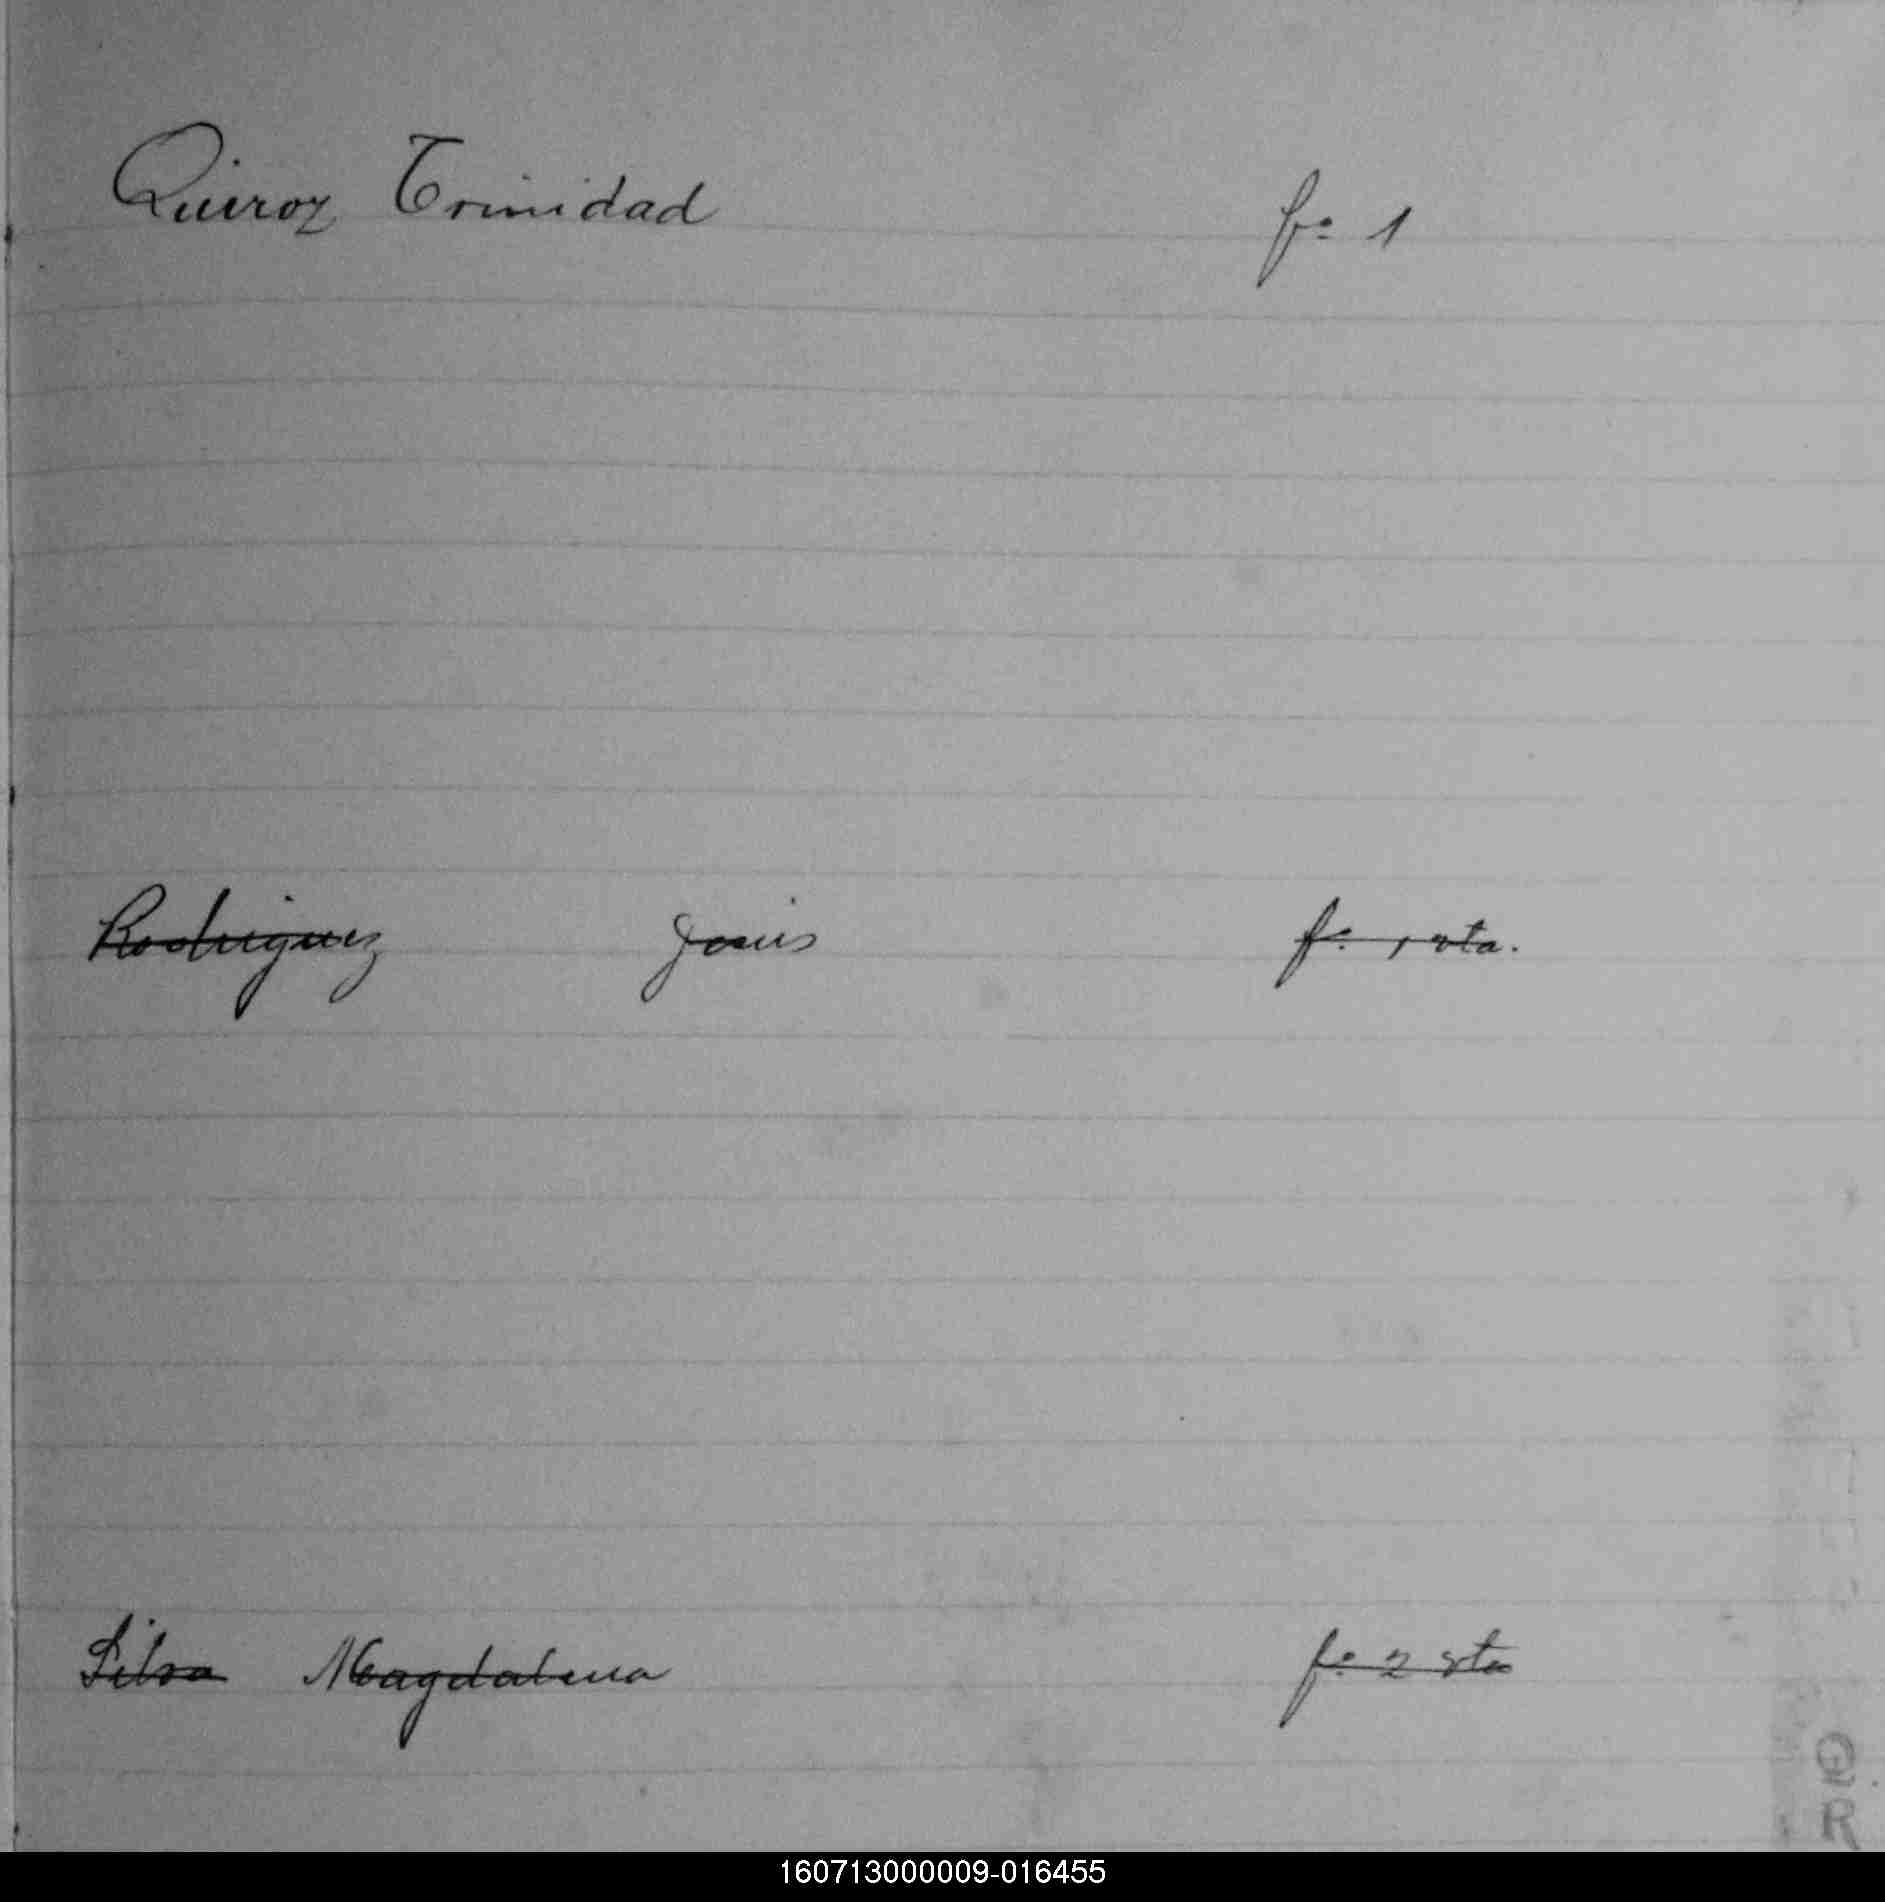 Quiroz Trinidad fº 1
Rodriguez Jesús fº 1 vta.
Silva Magdalena fº 2 vta
G
R
160713000009-016455